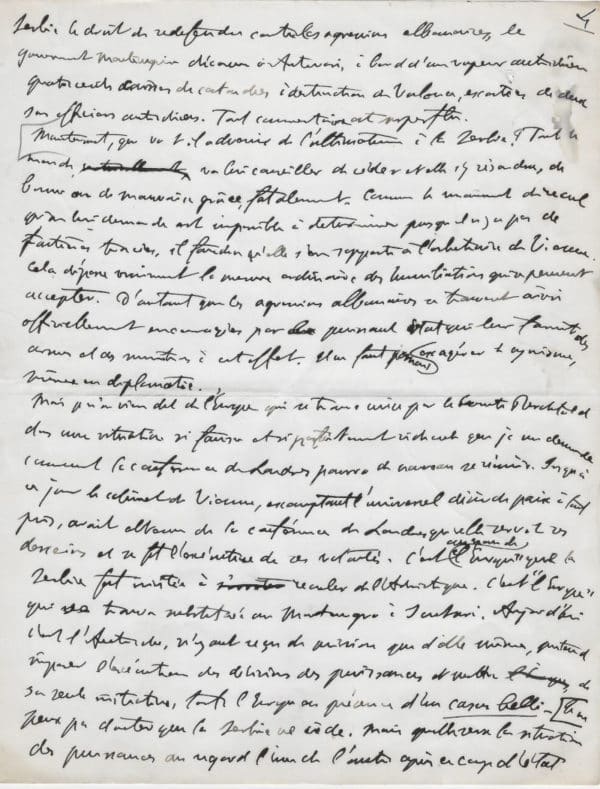 4
Serbie le droit de se défendre contre les agressions albanaises, le
gouvernement monténégrin découvre à Antivari, à bord d'un vapeur autrichien
quatorze cents caisses de cartouches à destination de Valona, escortées de deux
sous officiers autrichiens. Tout commentaire est superflu.
Maintenant, que va-t-il advenir de l'ultimatum à la Serbie? Tout le
monde, va lui conseiller de céder et elle s'y résoudra, de
bonne ou de mauvaise grâce, fatalement. Comme le mouvement de recul
qu'on lui demande est impossible à déterminer puisqu'il n'y a pas de
frontières tracées, il faudra qu'elle s'en rapporte à l'arbitraire de Vienne.
Cela dépasse vraiment la mesure ordinaire des humiliations qu'on peut
accepter. D'autant que les agressions albanaises se trouvent ainsi
officiellement encouragées par un puissant état qui leur fournit des
armes et des munitions à cet effet. Il ne faut pas exagérer le cynisme,
même en diplomatie.
Mais qu'advient-il de l'Europe qui se trouve mise par le comte Berchtold
dans une situation si fausse et si parfaitement ridicule que je me demande
comment la conférence de Londres pourra de nouveau se réunir. Jusqu'à
ce jour le cabinet de Vienne, escomptant l'universel désir de paix à tout
prix, avait obtenu de la conférence de Londres qu'elle servît ses
desseins et se fît l'exécutrice de ses volontés. C'est au nom de "l'Europe" que la
Serbie fut invitée à reculer de l'Adriatique. C'est "l'Europe"
qui se trouva substituée au Monténégro à Scutari. Aujourd'hui
c'est l'Autriche, n'ayant reçu de mission que d'elle même, prétend
imposer l'exécution des décisions des puissances et mettre de
sa seule initiative, toute l'Europe en présence d'un casus belli. Je ne
peux pas douter que la Serbie ne cède. Mais quelle sera la situation
des puissances au regard l'une de l'autre après ce coup d'état